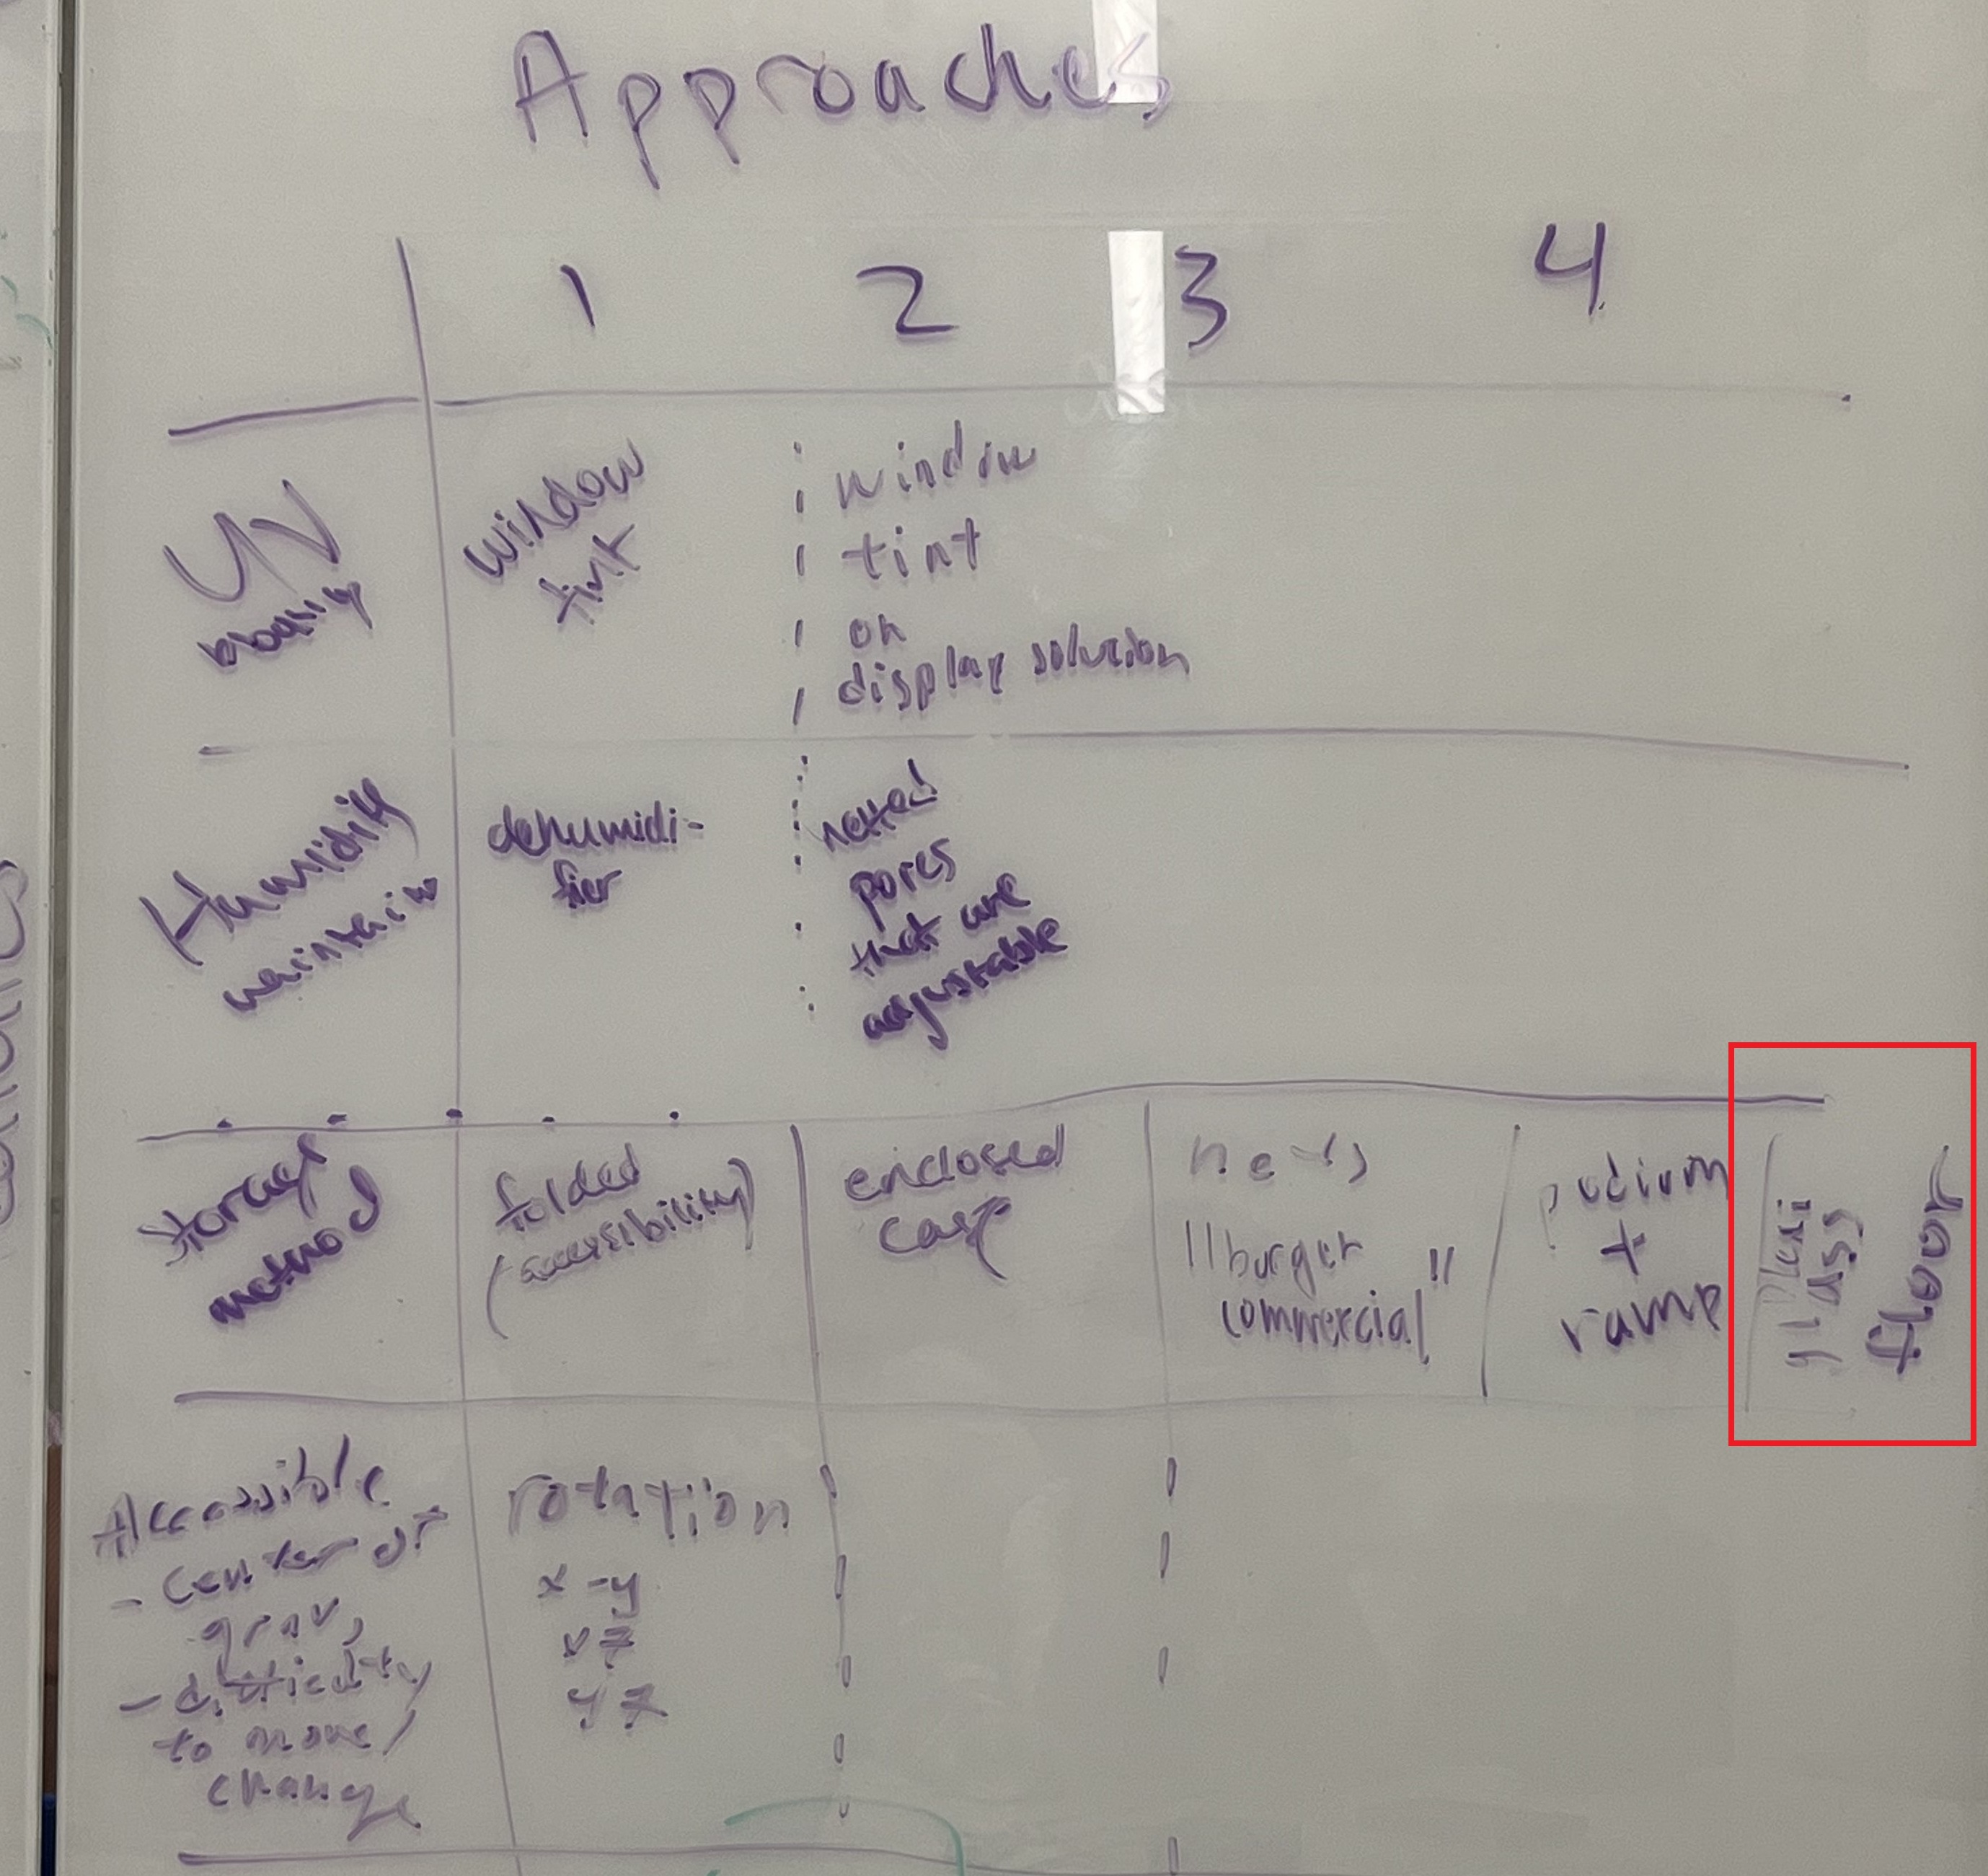 Approaches
1 2 3 4
UV
blocking
window
tint
window
tint
on
display solution
Humidity
maintain
dehumidi-
fier
netted
pores
that are
adjustable
storage
method
folded
(accessibility)
enclosed
case
nets
"burger
commercial"
podium
+
ramp
plexi
glass
floor
Accessible
- center of
grav,
- difficulty
to move/
change
rotation
x-y
xz
yz